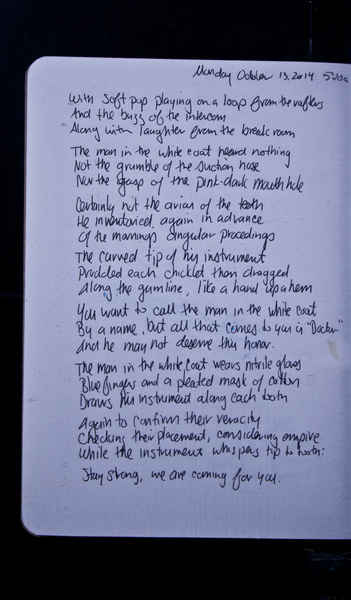 Monday October 13, 2014 5:20a
With soft pop playing on a loop from the rafters
And the buzz of the intercom
Along with laughter from the break room
The man in the white coat heard nothing
Not the grumble of the suction hose
Nor the gasp of the pink-dark mouth hole
Certainly not the of the teeth
He inventoried again in advance
Of the mornings singular procedings
The curved tip of his instrument
Prodded each chicklet then dragged
Along the gumline, like a hand up a hem
You want to call the man in the white coat
By a name, but all that comes to you is "Doctor"
And he may not deserve this honor.
The man in the white coat wears nitrile gloves
Blue fingers and a pleated mask of cotton
Draws his instrument along each tooth
Again to confirm their veracity
Checking their placement, considering empire
While the instrument whispers tip to tooth:
Stay strong, we are coming for you.